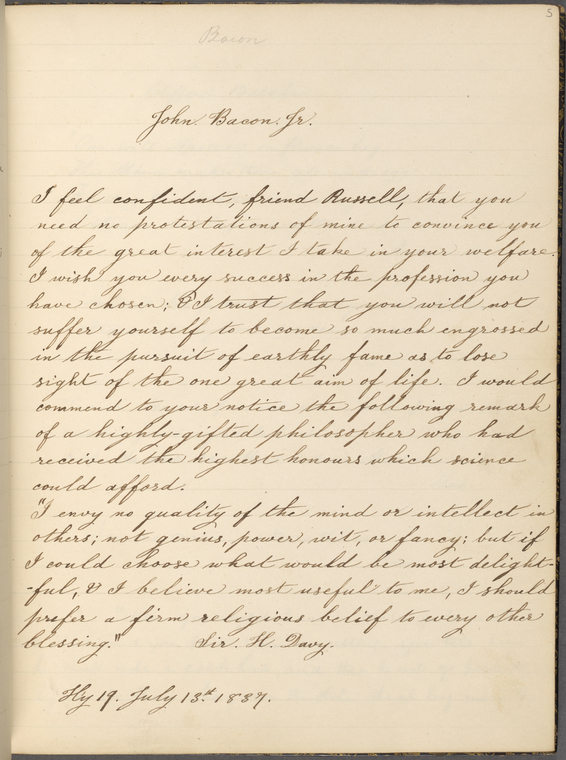 5
Bacon
John Bacon. Jr.
I feel confident, friend Russell, that you
need no protestations of mine to convince you
of the great interest I take in your welfare.
I wish you every success in the profession you
have chosen; & I trust that you will not
suffer yourself to become so much engrossed
in the pursuit of earthly fame as to lose
sight of the one great aim of life. I would
commend to your notice the following remark
of a highly-gifted philosopher who had
received the highest honours which science
could afford.
"I envy no quality of the mind or intellect in
others; not genius, power, wit, or fancy; but if
I could choose what would be most delight-
-ful, & I believe most useful to me, I should
prefer a firm religious belief to every other
blessing." Sir. H. Davy.
Hy 19. July 13.th 1837.